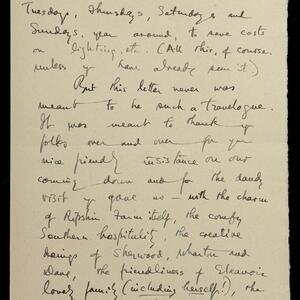 Tuesdays, Thursdays, Saturdays and
Sundays, year around, to save costs
on lighting, etc. (All this, of course,
unless you have already seen it.)
But this letter never was
meant to be such a travelogue.
It was meant to thank you
folks over and over for your
nice friendly insistence on our
coming down and for the dandy
visit you gave us — with the charm
of Ripshin Farm itself, the comfy
Southern hospitality, the creative
doings of Sherwood, whether and
the friendliness of Eleanor's
lovely family (including herself!), the